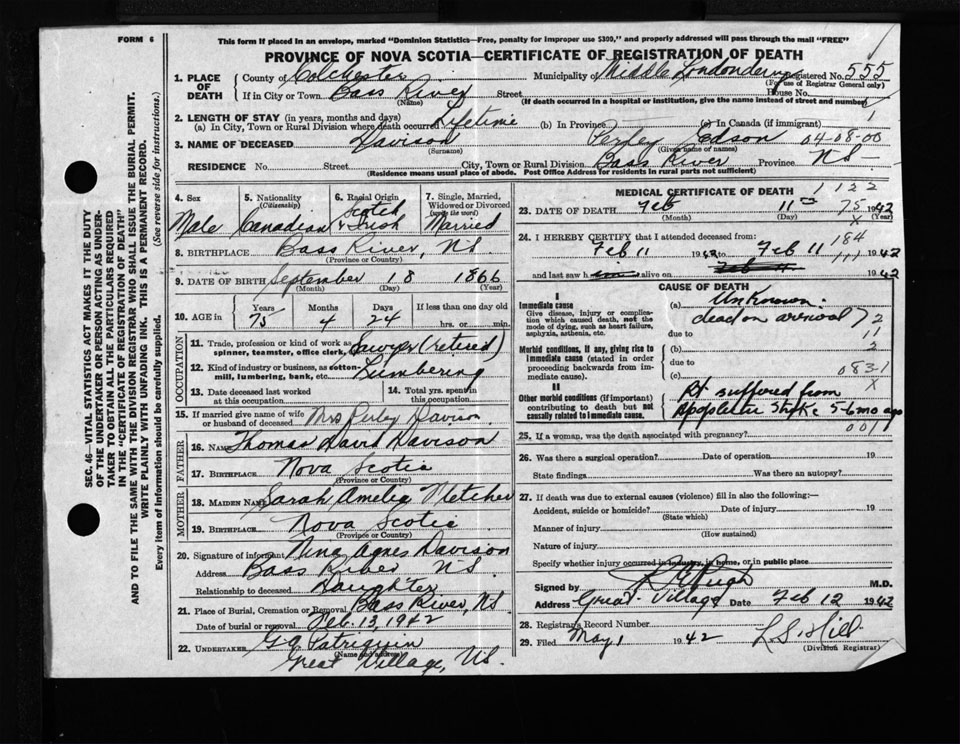 FORM 6
This form if placed in an envelope, marked "Dominion Statistics—Free, penalty for improper use $300," and properly addressed will pass through the mail "FREE"
PROVINCE OF NOVA SCOTIA—CERTIFICATE OF REGISTRATION OF DEATH
1. PLACE OF DEATH
County of Colchester Municipality of Middle Londonderry Registered No. 555
(For use of Registrar General only)
If in City or Town Bass River Street House No.
(Name) (If death occurred in a hospital or institution, give the name instead of street and number)
2. LENGTH OF STAY (in years, months and days)
(a) In City, Town or Rural Division where death occurred Lifetime (b) In Province (c) In Canada (if immigrant) 1
3. NAME OF DECEASED Davison Perley Edson 04-08-00
(Surname) (Given name or names)
RESIDENCE No. Street City, Town or Rural Division Bass River Province NS
(Residence means usual place of abode. Post Office Address for residents in rural parts not sufficient)
4. Sex Male
5. Nationality (Citizenship) Canadian
6. Racial Origin Scotch & Irish
7. Single, Married, Widowed or Divorced (write the word) Married
8. BIRTHPLACE Bass River, N.S.
(Province or Country)
9. DATE OF BIRTH September 18 1866
(Month) (Day) (Year)
10. AGE in Years 75 Months 4 Days 24 If less than one day old hrs. or min.
OCCUPATION
11. Trade, profession or kind of work as spinner, teamster, office clerk, Sawyer (retired)
12. Kind of industry or business, as cotton-mill, lumbering, bank, etc. Lumbering
13. Date deceased last worked at this occupation
14. Total yrs. spent in this occupation
15. If married give name of wife or husband of deceased Mrs Perley Davison
FATHER
16. NAME Thomas David Davison
17. BIRTHPLACE Nova Scotia
(Province or Country)
MOTHER
18. MAIDEN NAME Sarah Amelia Fletcher
19. BIRTHPLACE Nova Scotia
(Province or Country)
20. Signature of informant Nina Agnes Davison
Address Bass River N.S.
Relationship to deceased Daughter
21. Place of Burial, Cremation or Removal Bass River, N.S.
Date of burial or removal Feb. 13, 1942
22. UNDERTAKER G A Patriquin
(Name and address)
Great Village, N.S.
MEDICAL CERTIFICATE OF DEATH 1122
23. DATE OF DEATH Feb 11 75 1942
(Month) (Day) (Year)
24. I HEREBY CERTIFY that I attended deceased from: 184
Feb 11 1942 to Feb 11 1942
and last saw h alive on 1942
CAUSE OF DEATH
I
Immediate cause
Give disease, injury or complications which caused death, not the mode of dying, such as heart failure, asphyxia, asthenia, etc.
(a) Unknown.
dead on arrival 72
due to 11
Morbid conditions, if any, giving rise to immediate cause (stated in order proceeding backwards from immediate cause).
(b) 2
due to 083-1
(c) X
II
Other morbid conditions (if important) contributing to death but not causally related to immediate cause.
Pt suffered from
Apoplectic Stroke 5-6 mo ago
001
25. If a woman, was the death associated with pregnancy?
26. Was there a surgical operation? Date of operation 19
State findings Was there an autopsy?
27. If death was due to external causes (violence) fill in also the following:—
Accident, suicide or homicide? Date of injury 19
(State which)
Manner of injury
(How sustained)
Nature of injury
Specify whether injury occurred in industry, in home, or in public place
Signed by Pugh M.D.
Address Great Village Date Feb 12 1942
28. Registrar's Record Number
29. Filed May 1 1942 L. S. Hill
(Division Registrar)
SEC. 46—VITAL STATISTICS ACT MAKES IT THE DUTY
OF THE UNDERTAKER OR PERSON ACTING AS UNDERTAKER TO OBTAIN ALL THE PARTICULARS REQUIRED
IN THE "CERTIFICATE OF REGISTRATION OF DEATH"
AND TO FILE THE SAME WITH THE DIVISION REGISTRAR WHO SHALL ISSUE THE BURIAL PERMIT.
WRITE PLAINLY WITH UNFADING INK. THIS IS A PERMANENT RECORD.
Every item of information should be carefully supplied. (See reverse side for instructions.)